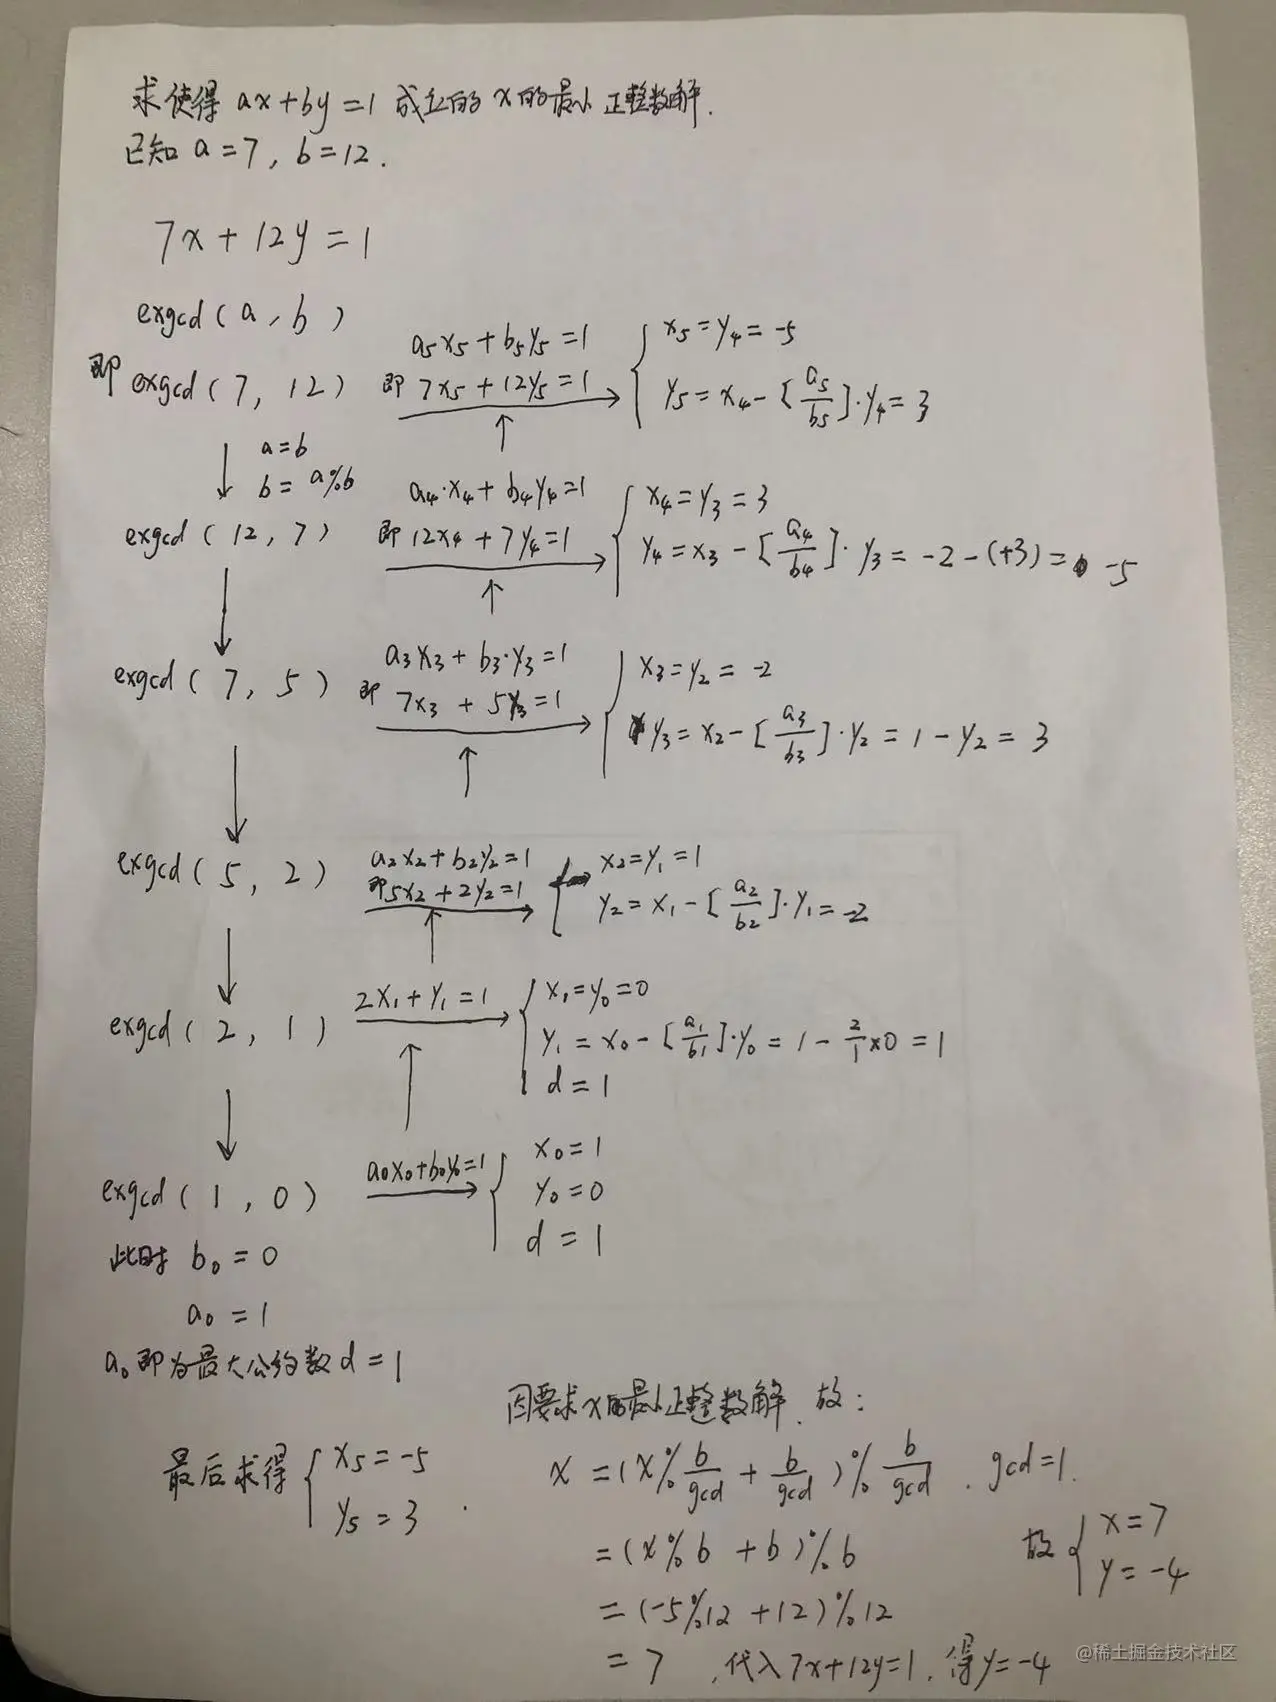 求使得 ax+by=1 成立的 x 的最小正整数解.
已知 a=7, b=12.
7x+12y=1
exgcd(a,b)
即 exgcd(7, 12)
a5x5+b5y5=1
即 7x5+12y5=1
x5=y4=-5
y5=x4-[a5/b5]·y4=3
a=b
b=a%b
exgcd(12,7)
a4·x4+b4y4=1
即 12x4+7y4=1
x4=y3=3
y4=x3-[a4/b4]·y3=-2-(+3)=-5
exgcd(7,5)
a3x3+b3·y3=1
即 7x3+5y3=1
x3=y2=-2
y3=x2-[a3/b3]·y2=1-y2=3
exgcd(5,2)
a2x2+b2y2=1
即5x2+2y2=1
x2=y1=1
y2=x1-[a2/b2]·y1=-2
exgcd(2,1)
2x1+y1=1
x1=y0=0
y1=x0-[a1/b1]·y0=1-2/1×0=1
d=1
exgcd(1,0)
a0x0+b0y0=1
x0=1
y0=0
d=1
此时 b0=0
a0=1
a0即为最大公约数d=1
最后求得
x5=-5
y5=3.
因要求x的最小正整数解,故:
x=(x%b/gcd+b/gcd)%b/gcd, gcd=1.
=(x%b+b)%b
=(-5%12+12)%12
=7,代入7x+12y=1,得y=-4
故
x=7
y=-4
@稀土掘金技术社区